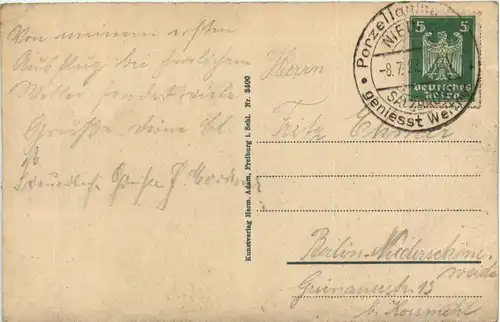 Von meinem ersten
Ausflug bei herrlichem
Wetter sendet viele
Grüße deine
Freundl. Grüße
Kunstverlag Herm. Adam, Freiburg i. Schl. Nr. 3400
Porzellan
NIE
-8.7.
SALZ
geniesst We
5 5
Deutsches
Reich
Herrn
Fritz
Berlin-Niederschöne-
weide
Grünauerstr. 13
b.